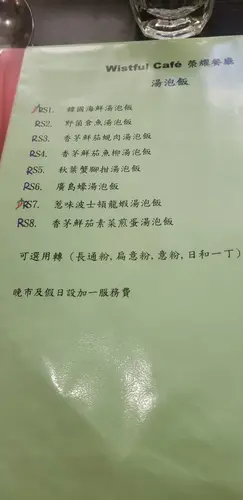 Wistful Café 榮燿餐廳
湯泡飯
RS1. 韓國海鮮湯泡飯
RS2. 野菌倉魚湯泡飯
RS3. 香茅鮮茄蜆肉湯泡飯
RS4. 香茅鮮茄魚柳湯泡飯
RS5. 秋葉蟹腳柑湯泡飯
RS6. 廣島蠔湯泡飯
RS7. 葱味波士頓龍蝦湯泡飯
RS8. 香茅鮮茄素菜煎蛋湯泡飯
可選用轉 (長通粉,扁意粉,意粉,日和一丁)
晚市及假日設加一服務費